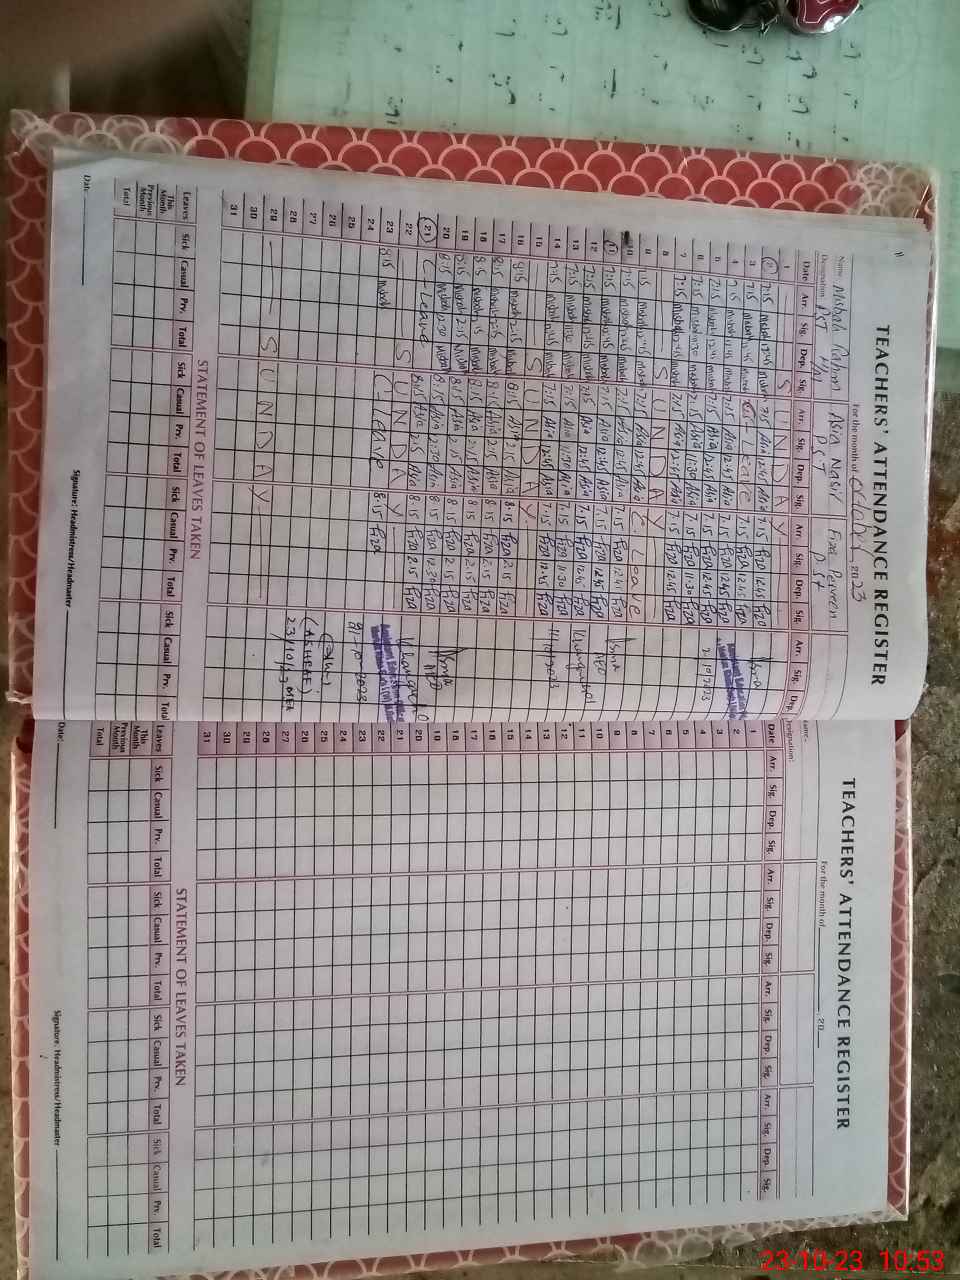 TEACHERS' ATTENDANCE REGISTER
For the month of October 2023
Name Misbah Rahim Asia Nasir Fiza Perveen
Designation PST PST PST
Date Arr. Sig. Dep. Sig. Arr. Sig. Dep. Sig. Arr. Sig. Dep. Sig. Arr. Sig. Dep.
1 S U N D A Y
2 7:15 Misbah 12:45 Misbah 7:15 Asia 12:45 Asia 7.15 Fiza 12.45 Fiza
3 7:15 Misbah 12:45 Misbah C-Leave 7.15 Fiza 12.45 Fiza
4 7:15 Misbah 12:45 Misbah 7:15 Asia 12:45 Asia 7.15 Fiza 12.45 Fiza
5 7:15 Misbah 12:45 Misbah 7:15 Asia 12:45 Asia 7.15 Fiza 12.45 Fiza
6 7:15 Misbah 11:30 Misbah 7:15 Asia 11:30 Asia 7.15 Fiza 11.30 Fiza
7 7:15 Misbah 12:45 Misbah 7:15 Asia 12:45 Asia 7.15 Fiza 12.45 Fiza
8 S U N D A Y
9 7:15 Misbah 12:45 Misbah 7:15 Asia 12:45 Asia C. Leave
10 7:15 Misbah 12:45 Misbah 7:15 Asia 12:45 Asia 7.15 Fiza 12.45 Fiza
11 7:15 Misbah 12:45 Misbah 7:15 Asia 12:45 Asia 7.15 Fiza 12.45 Fiza
12 7:15 Misbah 12:45 Misbah 7:15 Asia 12:45 Asia 7.15 Fiza 12.45 Fiza
13 7:15 Misbah 11:30 Misbah 7:15 Asia 11:30 Asia 7.15 Fiza 11.30 Fiza
14 7:15 Misbah 12:45 Misbah 7:15 Asia 12:45 Asia 7.15 Fiza 12.45 Fiza
15 S U N D A Y
16 8:15 Misbah 2:15 Misbah 8:15 Asia 2:15 Asia 8.15 Fiza 2.15 Fiza
17 8:15 Misbah 2:15 Misbah 8:15 Asia 2:15 Asia 8.15 Fiza 2.15 Fiza
18 8:15 Misbah 2:15 Misbah 8:15 Asia 2:15 Asia 8.15 Fiza 2.15 Fiza
19 8:15 Misbah 2:15 Misbah 8:15 Asia 2:15 Asia 8.15 Fiza 2.15 Fiza
20 8:15 Misbah 12:30 Misbah 8:15 Asia 12:30 Asia 8.15 Fiza 12.30 Fiza
21 C-Leave 8:15 Asia 2:15 Asia 8.15 Fiza 2.15 Fiza
22 S U N D A Y
23 8:15 Misbah C/Leave 8.15 Fiza
24
25
26
27
28
29 S U N D A Y
30
31
Asma
2/10/2023
Asma
AEO
Khangarh
11/10/2023
Asma
AEO
Khangarh
21-10-2023
(ASHEE)
23/10/23 MEA
STATEMENT OF LEAVES TAKEN
Leaves Sick Casual Prv. Total Sick Casual Prv. Total Sick Casual Prv. Total Sick Casual Prv. Total
This Month
Previous Month
Total
Date: Signature: Headmistress/Headmaster
TEACHERS' ATTENDANCE REGISTER
For the month of 20
Name:
Designation:
Date Arr. Sig. Dep. Sig. Arr. Sig. Dep. Sig. Arr. Sig. Dep. Sig. Arr. Sig. Dep. Sig.
1
2
3
4
5
6
7
8
9
10
11
12
13
14
15
16
17
18
19
20
21
22
23
24
25
26
27
28
29
30
31
STATEMENT OF LEAVES TAKEN
Leaves Sick Casual Prv. Total Sick Casual Prv. Total Sick Casual Prv. Total Sick Casual Prv. Total
This Month
Previous Month
Total
Date: Signature: Headmistress/Headmaster
23-10-23 10:53